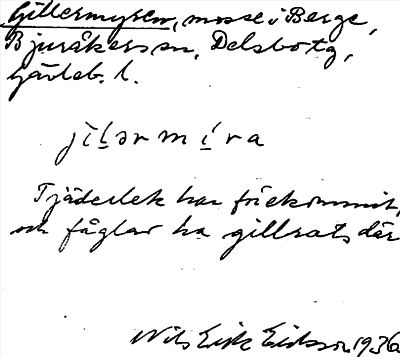 Gillermyren, mosse i Berge,
Bjuråkers sn, Delsbo tg,
Gävleb. l.
jilərmíra
Tjäderlek har förekommit,
och fåglar ha gillrats där
Nils Erik Eriksson 1936